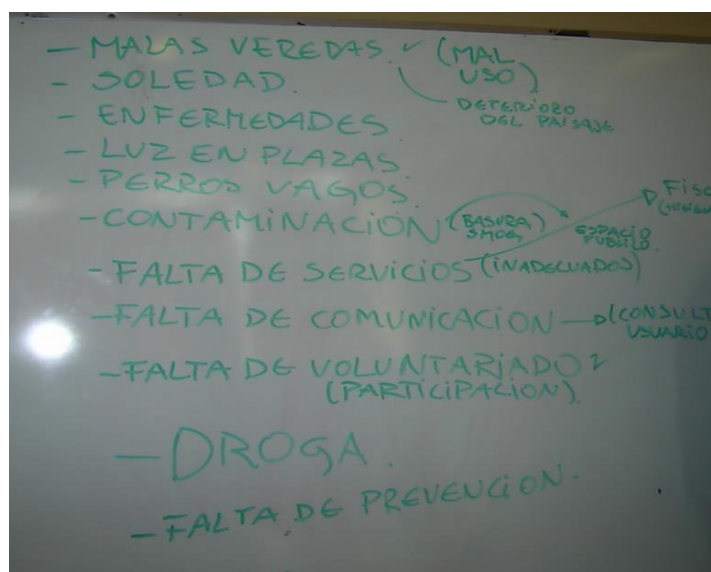 - MALAS VEREDAS. (MAL USO)
DETERIORO DEL PAISAJE
- SOLEDAD.
- ENFERMEDADES
- LUZ EN PLAZAS.
- PERROS VAGOS.
- CONTAMINACION (BASURA SMOG) ESPACIO PUBLICO.
- FALTA DE SERVICIOS (INADECUADOS)
- FALTA DE COMUNICACION → (CONSULT
USUARIO
- FALTA DE VOLUNTARIADO
(PARTICIPACION).
- DROGA.
- FALTA DE PREVENCION.